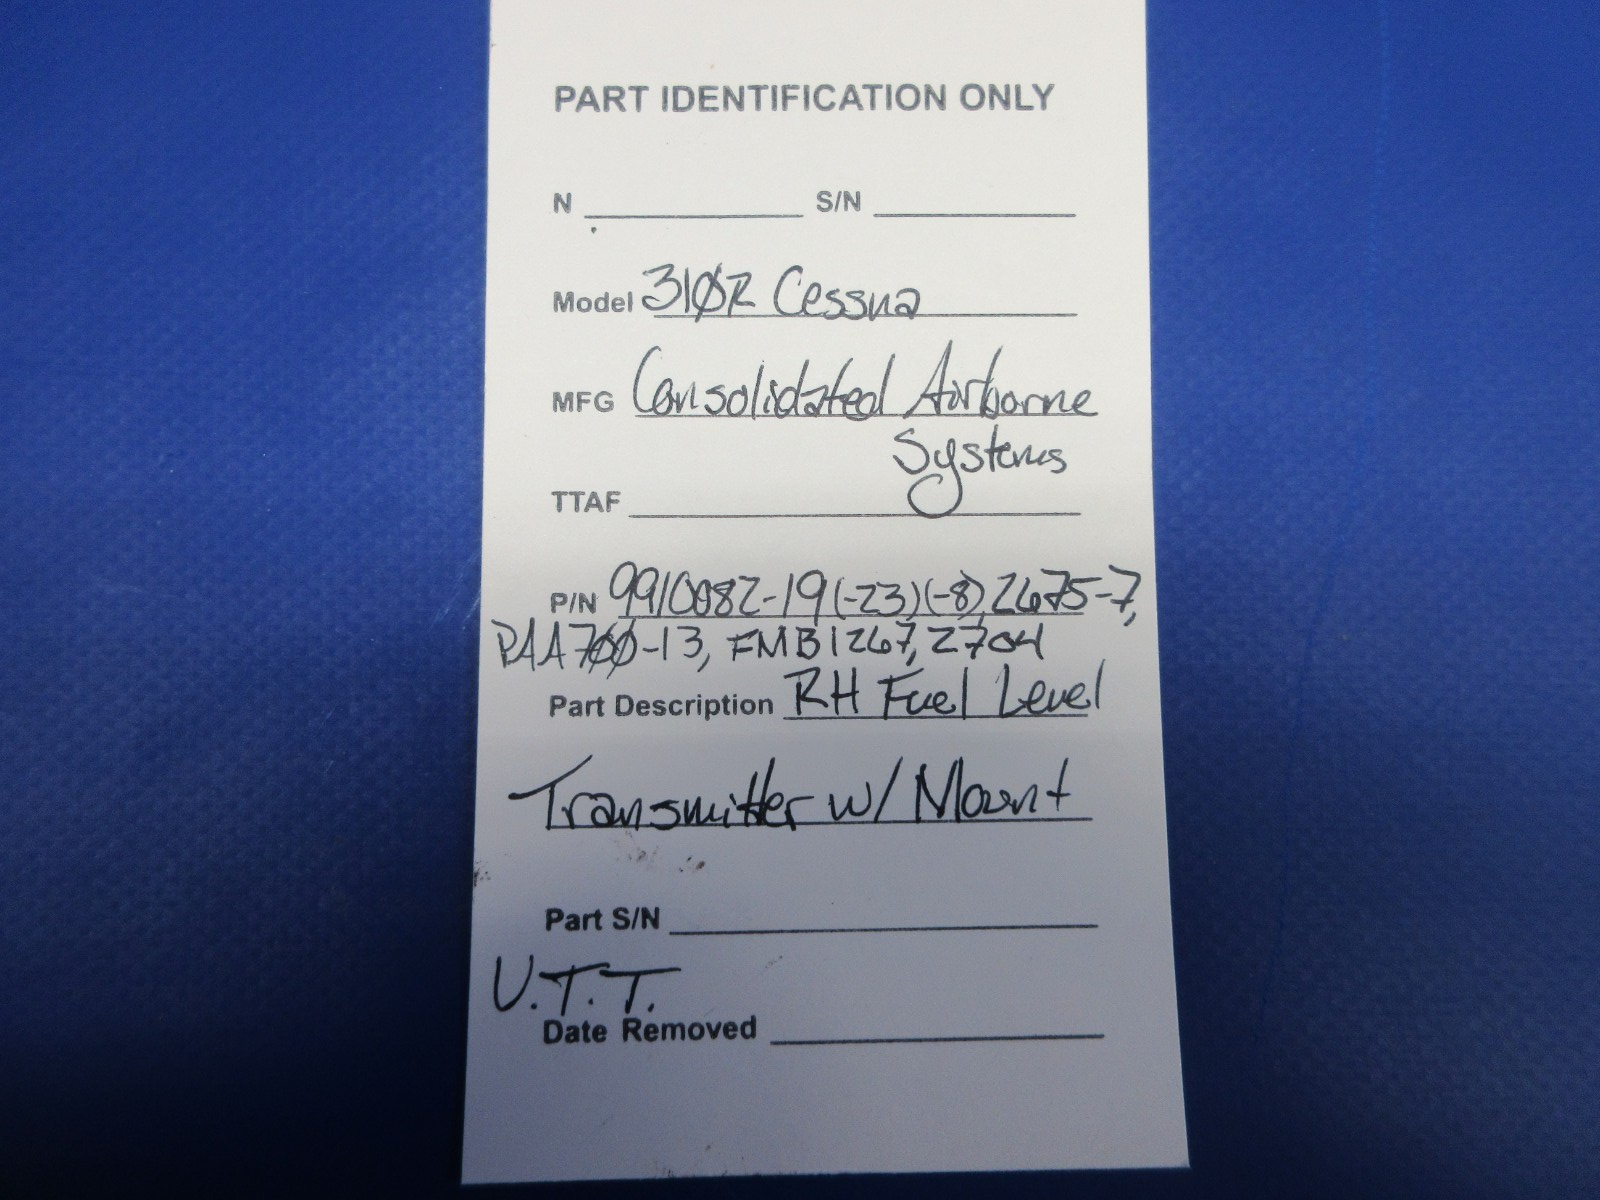 PART IDENTIFICATION ONLY
N S/N
Model 310R Cessna
MFG Consolidated Airborne
Systems
TTAF
P/N 9910082-19(-23)(-8), 2675-7,
PAA700-13, FMB1267, 2704
Part Description RH Fuel Level
Transmitter w/ Mount
Part S/N
U.T.T.
Date Removed